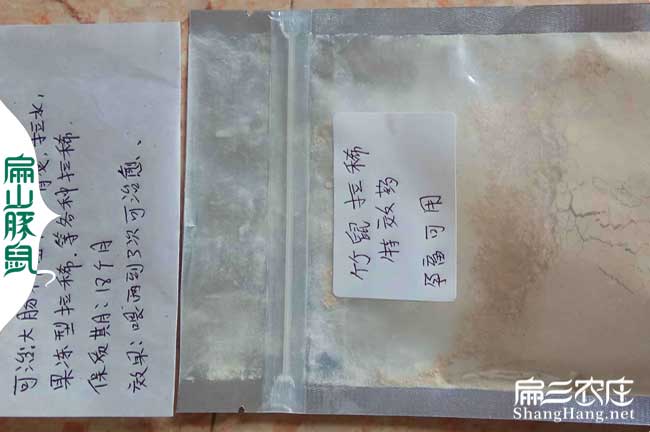 可治大肠
胃炎,拉水,
果冻型拉稀.等各种拉稀.
保质期:18个月
效果:喂两到3次可治愈、
竹鼠拉稀
特效药
孕畜可用
扁山豚鼠
扁三农庄
ShangHang.net